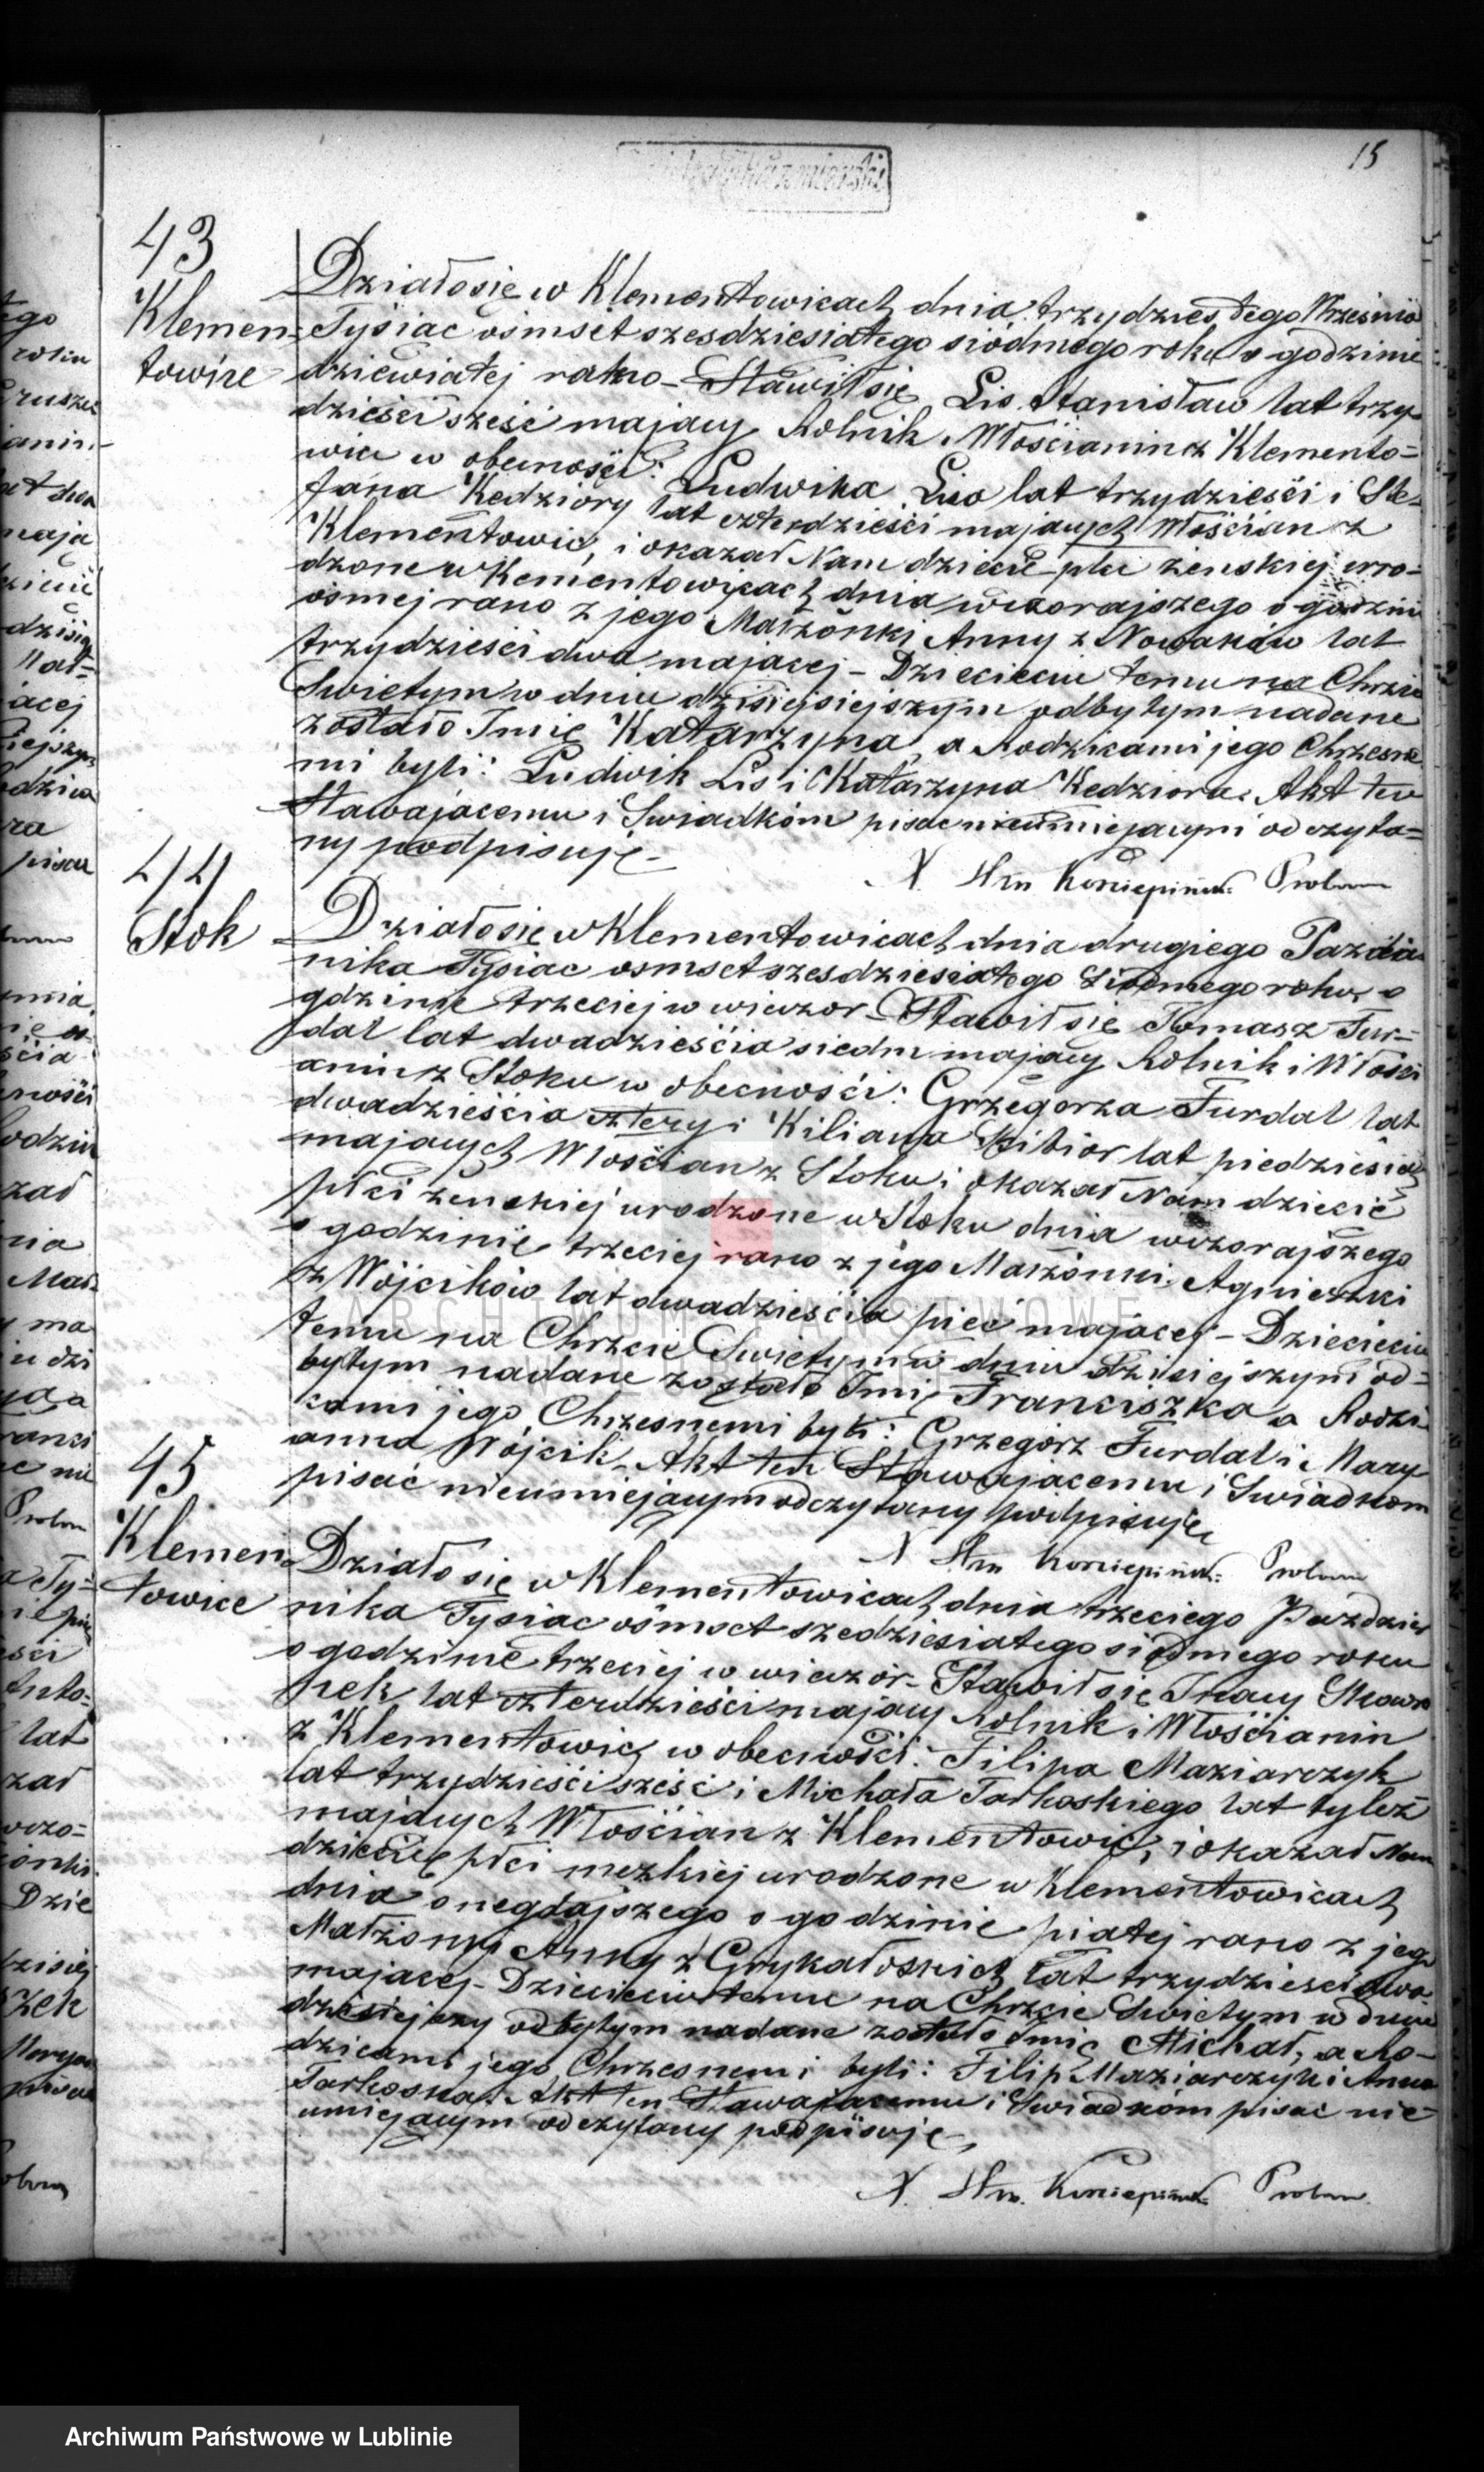 15
43
Klemen=
towice
Działo się w Klementowicach dnia trzydziestego Wrzesnia
Tysiac osmset szesdziesiatego siódmego roku o godzinie
dziewiatej rano – Stawił się Lis Stanisław lat trzy
dzieści sześć majacy Rolnik Włościanin z Klemento=
wic w obecności: Ludwika Lisa lat trzydzieści i Ste=
fana Kedziory lat czterdzieści majacych Włościan z
Klementowic, i okazał Nam dziecie płci żenskiej uro=
dzone w Kementowicach dnia wczorajszego o godzinie
osmej rano z jego Małżonki Anny z Nowaków lat
trzydzieści dwa majacej – Dziecieciu temu na Chrzcie
Swietym w dniu dzisiejsiejszym odbytym nadane
zostało Imię Katarzyna, a Rodzicami jego Chrzesne
mi byli: Ludwik Lis i Katarzyna Kedziora. Akt ten
Stawajacemu i Swiadkóm pisac nieumiejacymi odczyta=
ny podpisuję –
X. Proboszcz
44
Stok
Działo się w Klementowicach dnia drugiego Pazdzier
nika Tysiac osmset szesdziesiatego siodmego roku, o
godzinie trzeciej w wieczor – Stawił się Tomasz Fur=
dal lat dwadzieścia siedm majacy Rolnik i Włości
anin z Stoku w obecności: Grzegorza Furdal lat
dwadzieścia cztery i Kiliana Kibior lat piedziesiat
majacych Włościan z Stoku i okazał Nam dziecie
płci żenskiej urodzone w Stoku dnia wczorajszego
o godzinie trzeciej rano z jego Małżonki, Agnieszki
z Wójcików lat dwadzieścia pieć majacej – Dziecieciu
temu na Chrzcie Swietym w dniu dzisiejszym od=
bytym nadane zostało Imię Franciszka a Rodzi
cami jego Chrzesnemi byli: Grzegorz Furdal i Mary
anna Wójcik – Akt ten Stawajacemu i Swiadkom
pisać nieumiejacym odczytany podpisuję
X. Proboszcz
45
Klemen=
towice
Działo się w Klementowicach dnia trzeciego Pazdzier
nika Tysiac osmset szedziesiatego siodmego roku
o godzinie trzeciej w wieczór – Stawił się Ignacy Skowro
nek lat czterdzieści majacy Rolnik i Włościanin
z Klementowic, w obecności: Filipa Maziarczyk
lat trzydzieści sześć i Michała Tarkoskiego lat tyleż
majacych Włościan z Klementowic, i okazał Nam
dziecie płci mezkiej urodzone w Klementowicach
dnia onegdajszego o godzinie piatej rano z jego
Małżonki Anny z Grykałoskich lat trzydzieści dwa
majacej – Dziecieciu temu na Chrzcie Swietym w dniu
dzisiejszy odbytym nadane zostało Imię Michał, a Ro=
dzicami jego Chrzesnemi byli: Filip Maziarczyk i Anna
Tarkoska. Akt ten Stawajacemu i Swiadkóm pisac nie=
umiejacym odczytany podpisuję –
X. Proboszcz
ARCHIWUM PAŃSTWOWE
W LUBLINIE
Archiwum Państwowe w Lublinie